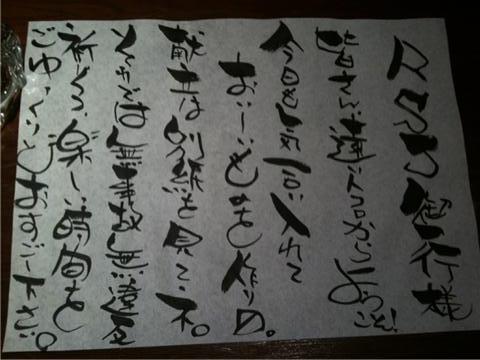 御一行様
皆さん遠いトコロからようこそ!
今日も気合い入れて
おいしいものを作り〼。
献立は別紙を見て
それでは無事故無違反
祈りつつ、楽しい時間を
ごゆっくりとおすごし下さい。